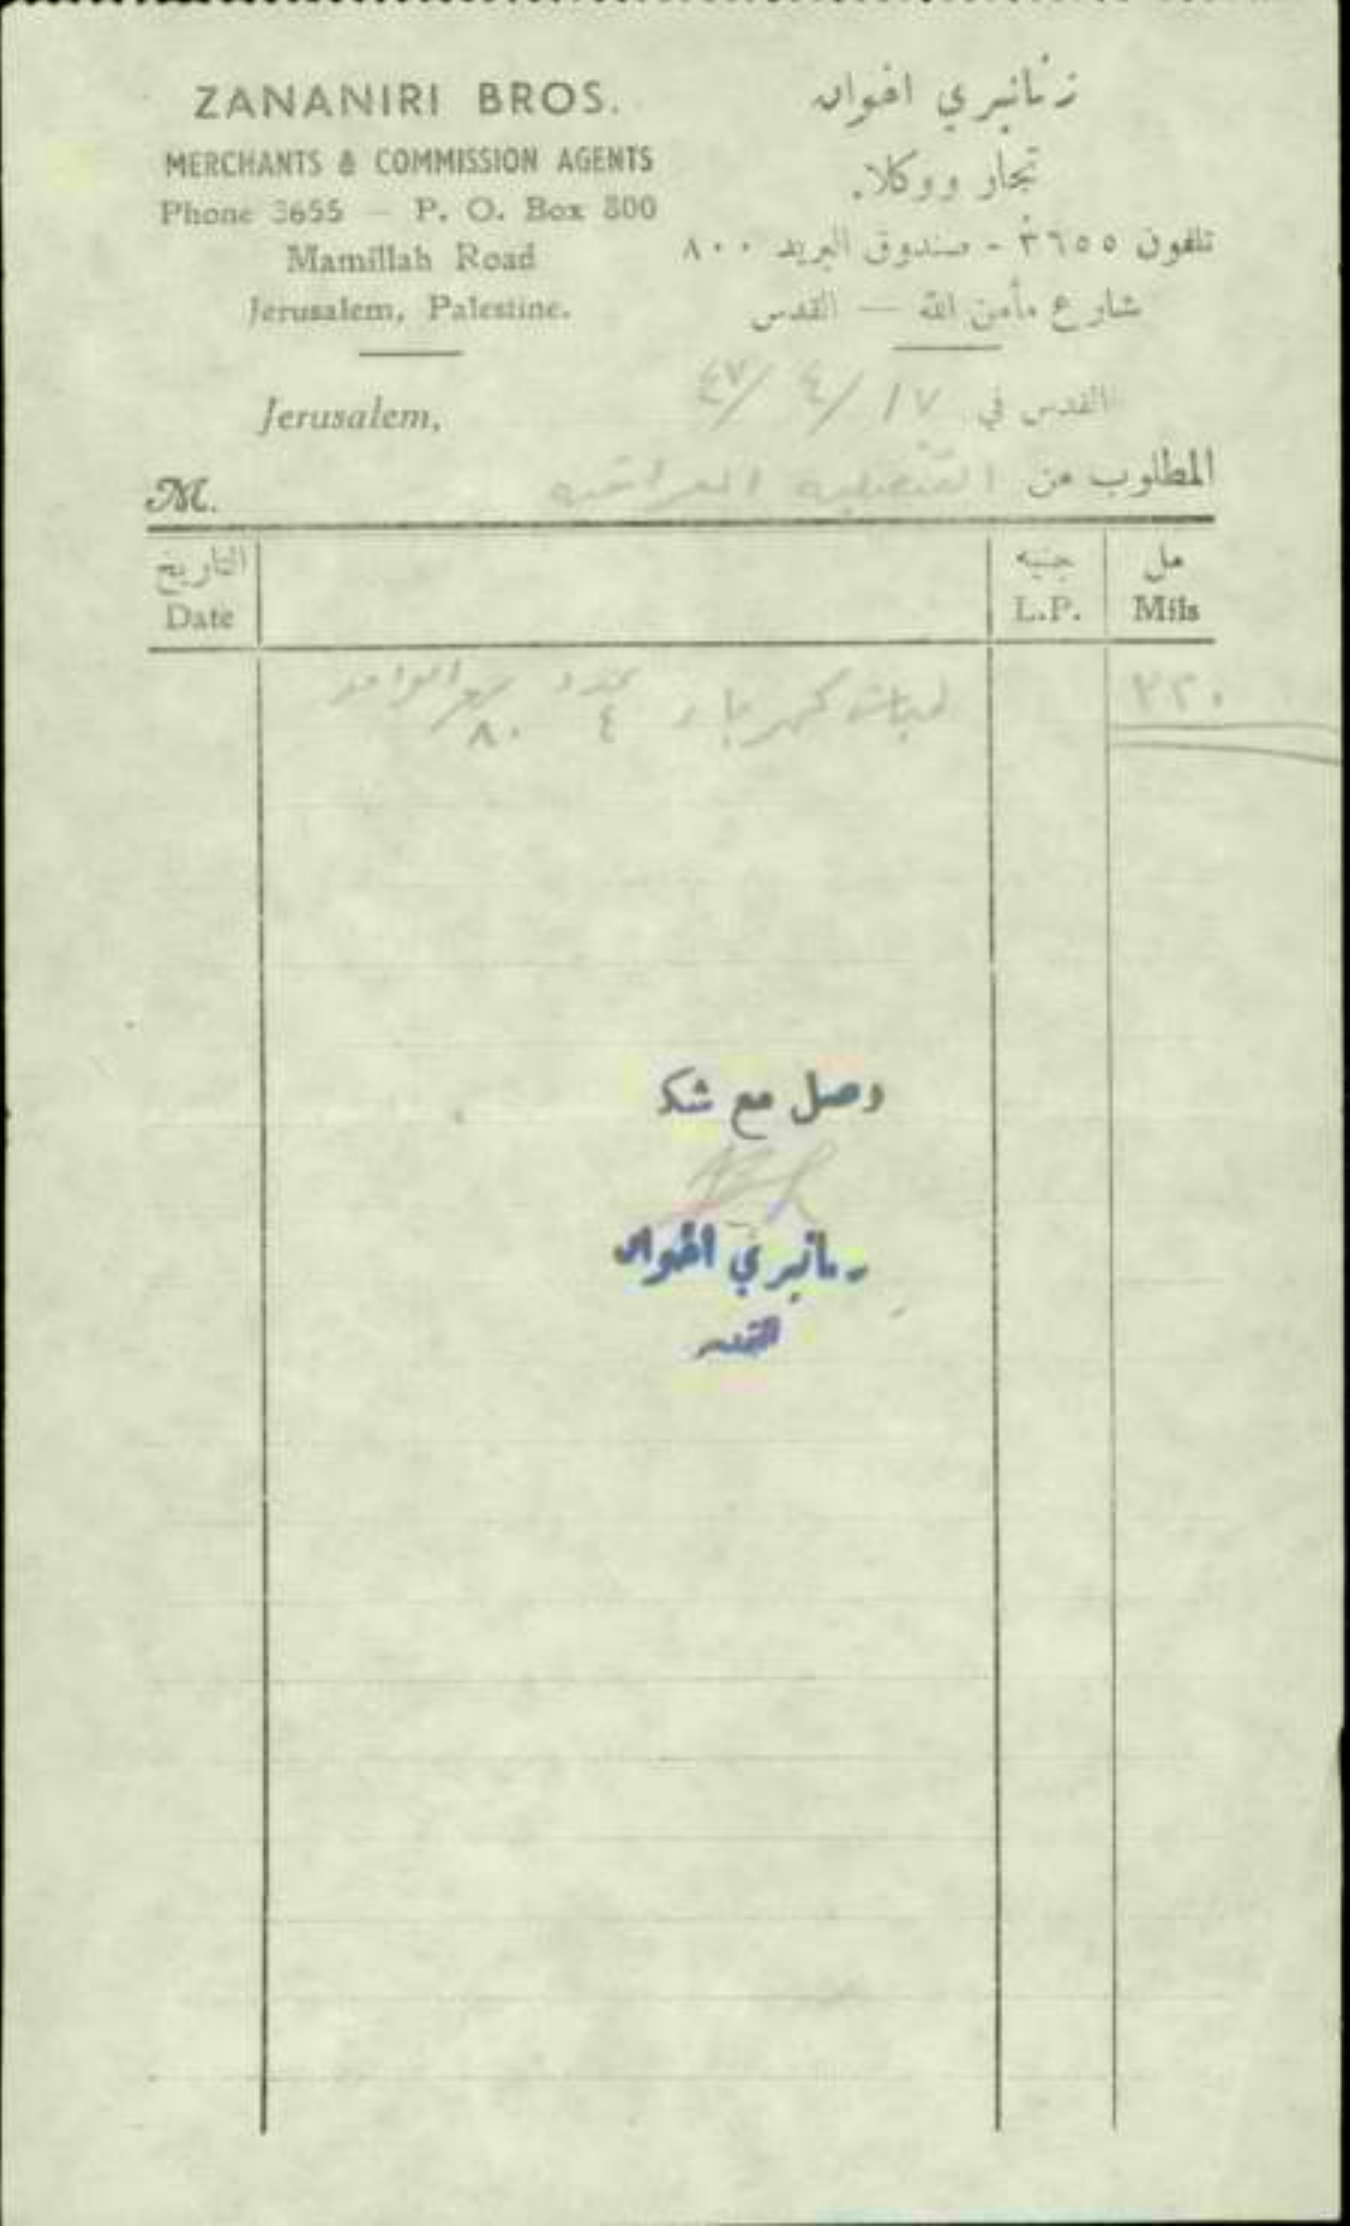 ZANANIRI BROS.
MERCHANTS & COMMISSION AGENTS
Phone 3655 — P. O. Box 800
Mamillah Road
Jerusalem, Palestine.
زنانيري اخوان
تجار ووكلاء
تلفون ٣٦٥٥ - صندوق البريد ٨٠٠
شارع مأمن الله — القدس
Jerusalem,
القدس في ١٧/ ٤/ ٤٧
المطلوب من القنصلية العراقية
M.
التاريخ
Date
جنيه
L.P.
مل
Mils
لمبات كهرباء عدد ٤ سعر الواحد ٨٠
٣٢٠
وصل مع شك
زنانيري اخوان
القدس